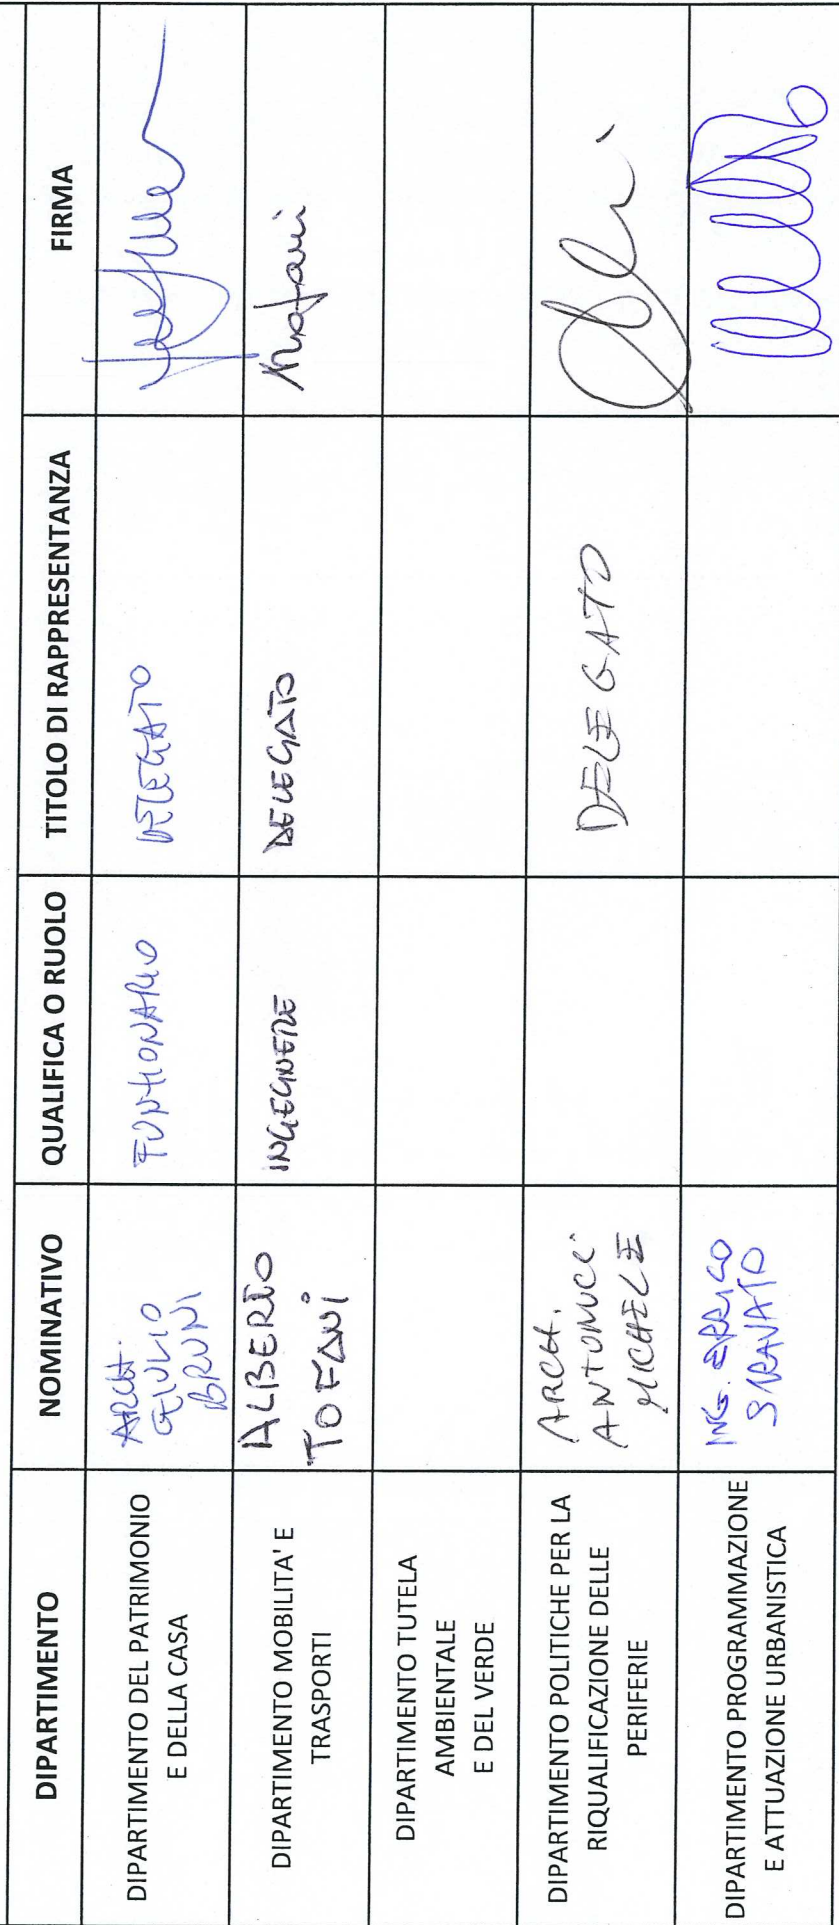 DIPARTIMENTO
NOMINATIVO
QUALIFICA O RUOLO
TITOLO DI RAPPRESENTANZA
FIRMA
DIPARTIMENTO DEL PATRIMONIO
E DELLA CASA
ARCH.
GIULIO
BRUNI
FUNZIONARIO
DELEGATO
DIPARTIMENTO MOBILITA' E
TRASPORTI
ALBERTO
TOFANI
INGEGNERE
DELEGATO
DIPARTIMENTO TUTELA
AMBIENTALE
E DEL VERDE
DIPARTIMENTO POLITICHE PER LA
RIQUALIFICAZIONE DELLE
PERIFERIE
ARCH.
ANTONUCCI
MICHELE
DELEGATO
DIPARTIMENTO PROGRAMMAZIONE
E ATTUAZIONE URBANISTICA
ING. ERRICO
STRAVATO